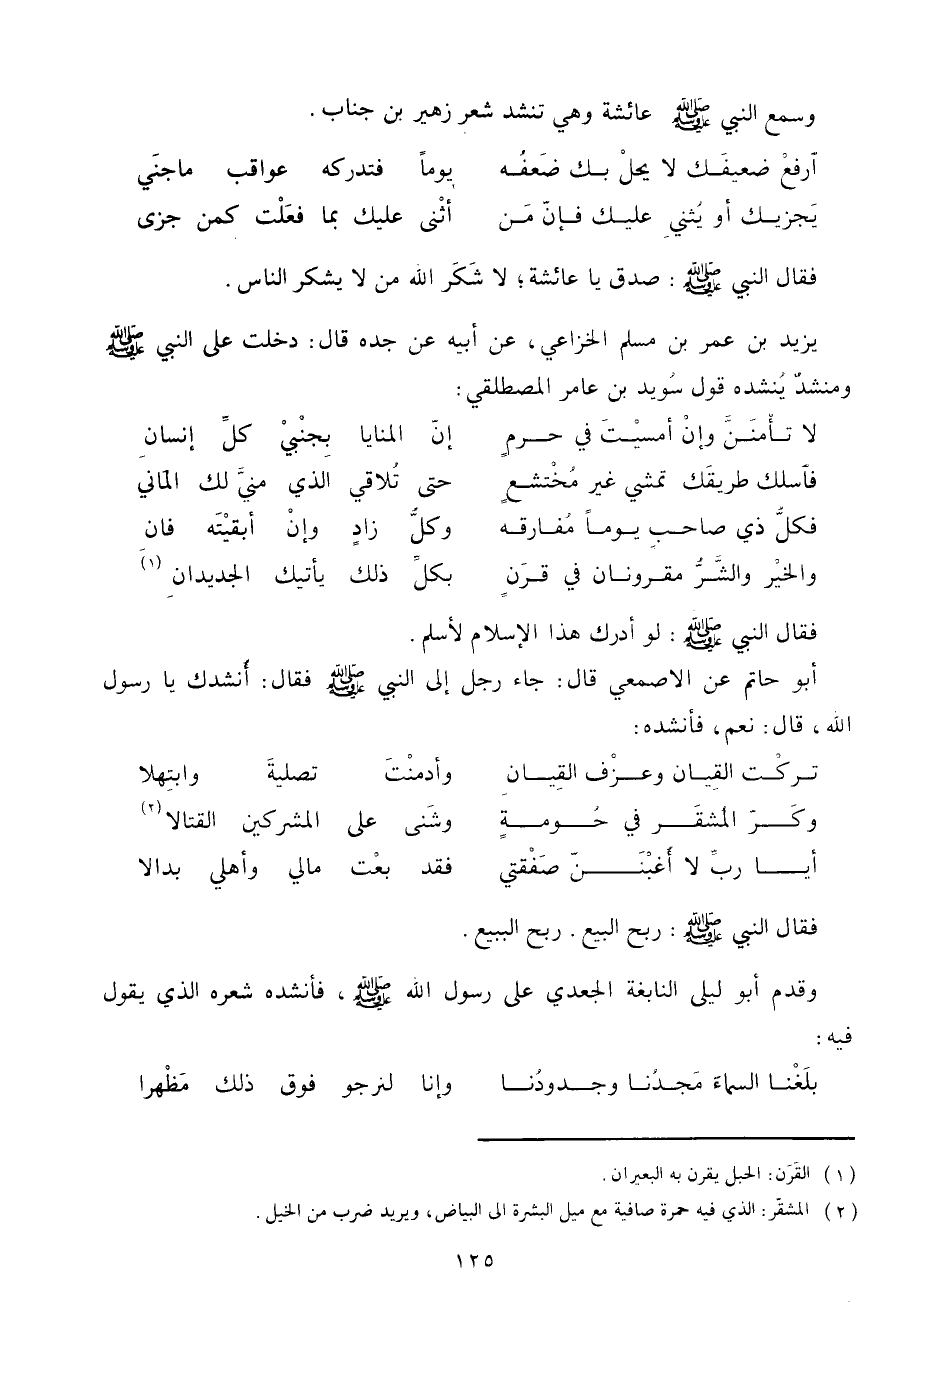 وسمع النبي ﷺ عائشة وهي تنشد شعر زهير بن جناب .
آرفعْ ضعيفَـك لا يحلْ بـك ضَعفُـه يوماً فتدركه عواقب ماجنَي
يَجزيـك أو يُثني عليـك فـإنّ مَـن أثْنى عليك بما فعَلْت كمن جزى
فقال النبي ﷺ : صدق يا عائشة؛ لا شَكَر الله من لا يشكر الناس .
يزيد بن عمر بن مسلم الخزاعي، عن أبيه عن جده قال: دخلت على النبي ﷺ
ومنشدٌ يُنشده قول سُويد بن عامر المصطلقي:
لا تـأمَنَـنَّ وإنْ أمسيْـتَ في حـرمٍ إنّ المنايا بِجنْبيْ كلِّ إنسان
فآسلك طريقَك تمشي غير مُخْتشعٍ حتى تُلاقي الذي منىَّ لك الماني
فكلُّ ذي صاحب يـومـاً مُفـارقـه وكلُّ زادٍ وإنْ أبقيْتَه فان
والخيْر والشَّرُّ مقـرونـان في قـرَن بكلِّ ذلك يأتيك الجديدان (١)
فقال النبي ﷺ : لو أدرك هذا الإسلام لأسلم .
أبو حاتم عن الاصمعي قال: جاء رجل إلى النبي ﷺ فقال: أُنشدك يا رسول
الله، قال: نعم، فأنشده:
تـركْـت القيـان وعـزْف القيـان وأدمنْتَ تصليةَ وابتهلا
وكَـرّ المُشقَـر في حُـومـةٍ وشنى على المشركين القتالا (٢)
أيـا ربِّ لا أُغبْنَـنّ صَفْقتي فقد بعْت مالي وأهلي بدالا
فقال النبي ﷺ : ربح البيع . ربح البيع .
وقدم أبو ليلى النابغة الجعدي على رسول الله ﷺ، فأنشده شعره الذي يقول
فيه:
بلَغْنـا السماءَ مَجدُنـا وجـدودُنـا وإنا لنرجو فوق ذلك مَظْهرا
(١) القَرَن: الحبل يقرن به البعيران .
(٢) المشقّر: الذي فيه حمرة صافية مع ميل البشرة الى البياض، ويريد ضرب من الخيل .
١٢٥